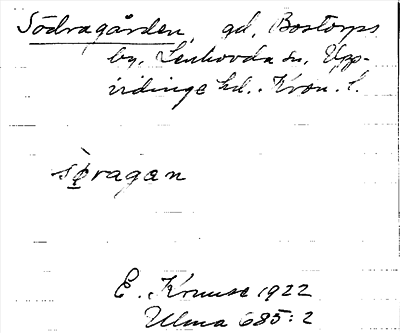 Södragården, gd, Bostorps
by, Lenhovda sn, Upp-
vidinge hd. Kron. l.
sọ̀ragan
E. Kruuse 1922
Ulma 685:2